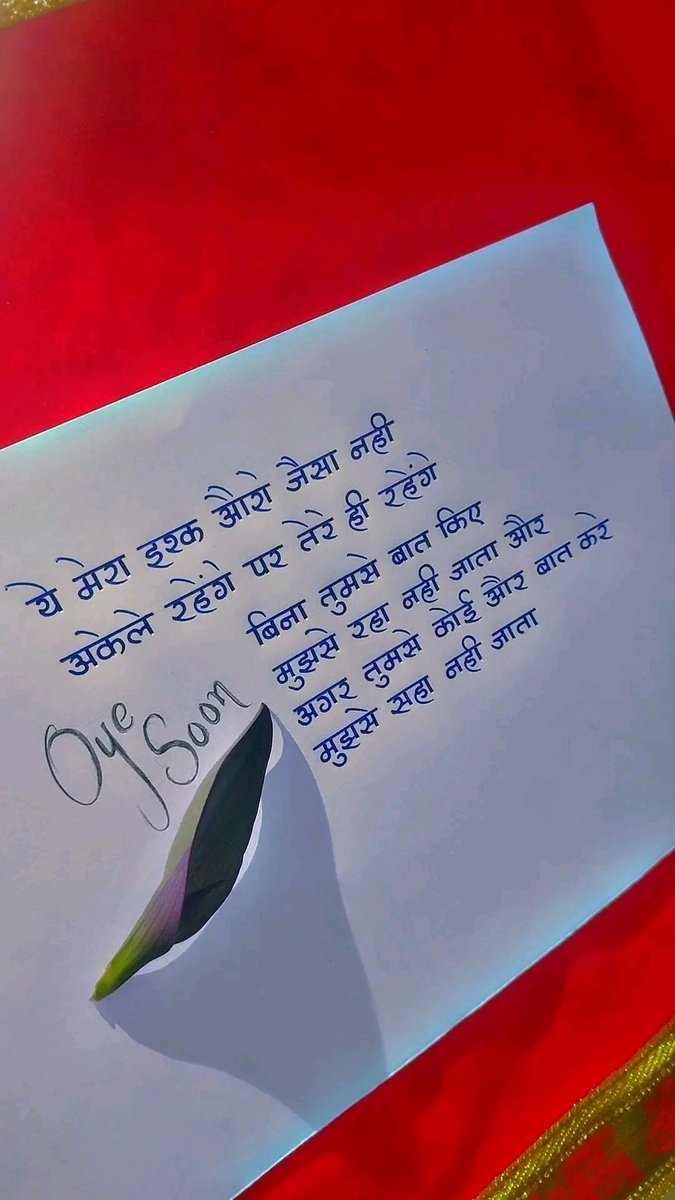 ये मेरा इश्क औरो जैसा नही
अकेले रहेंगे पर तेरे ही रहेंगे
बिना तुमसे बात किए
मुझसे रहा नही जाता और
अगर तुमसे कोई और बात करे
मुझसे सहा नही जाता
Oye
Soon